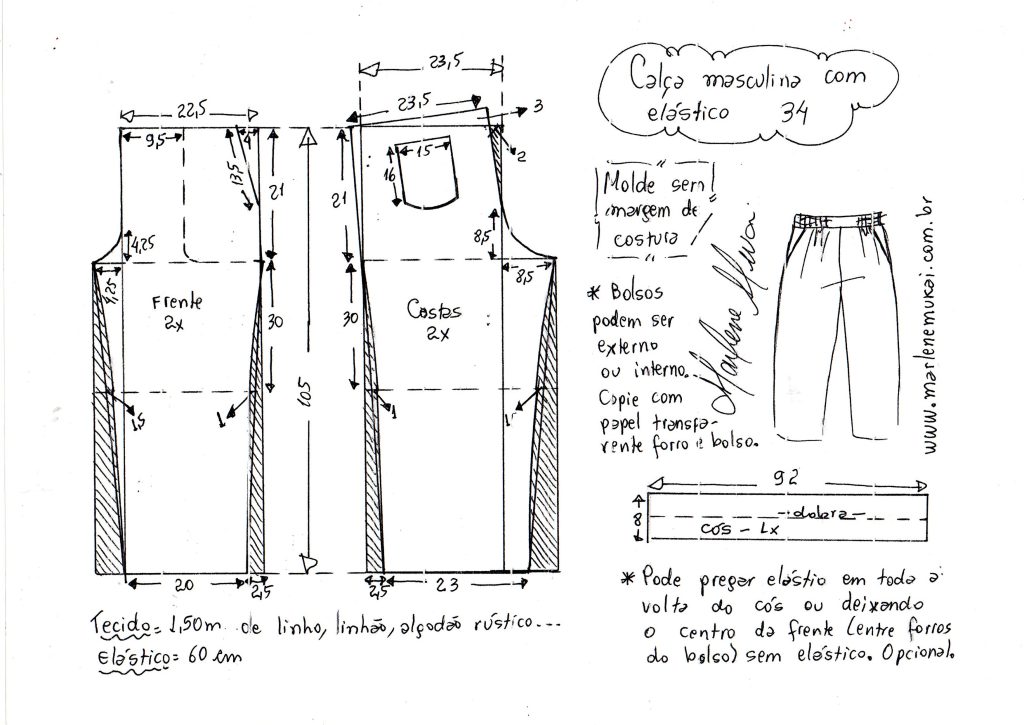 Calça masculina com
elástico 34
Molde sem
margem de
costura
* Bolsos
podem ser
externo
ou interno...
Copie com
papel transpa-
rente forro e bolso.
Marlene Mukai
www.marlenemukai.com.br
22,5
9,5
4
13,5
21
4,25
4,25
Frente
2x
30
1,5
1
20
2,5
105
23,5
23,5
3
2
15
16
21
8,5
8,5
Costas
2x
30
1
1
2,5
23
92
8
dobra
cós - 1x
Tecido = 1,50m de linho, linhão, algodão rústico...
Elástico = 60 cm
* Pode pregar elástio em toda a
volta do cós ou deixando
o centro da frente (entre forros
do bolso) sem elástico. Opcional.